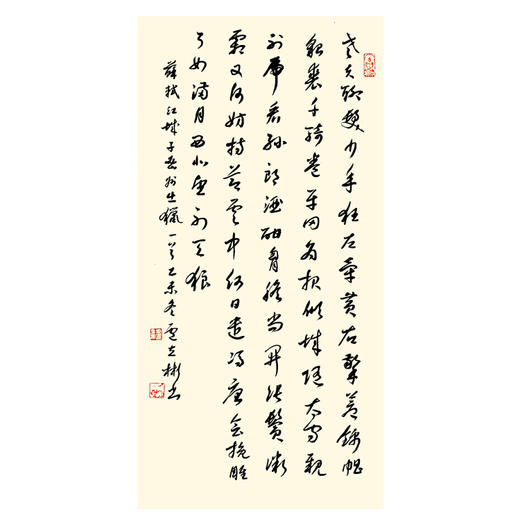 老夫聊發少年狂左牽黃右擎蒼錦帽
貂裘千騎卷平岡為報傾城隨太守親
射虎看孫郎酒酣胸膽尚開張鬢微
霜又何妨持節雲中何日遣馮唐會挽雕
弓如滿月西北望射天狼
蘇軾江城子密州出獵一首乙未冬立彬書